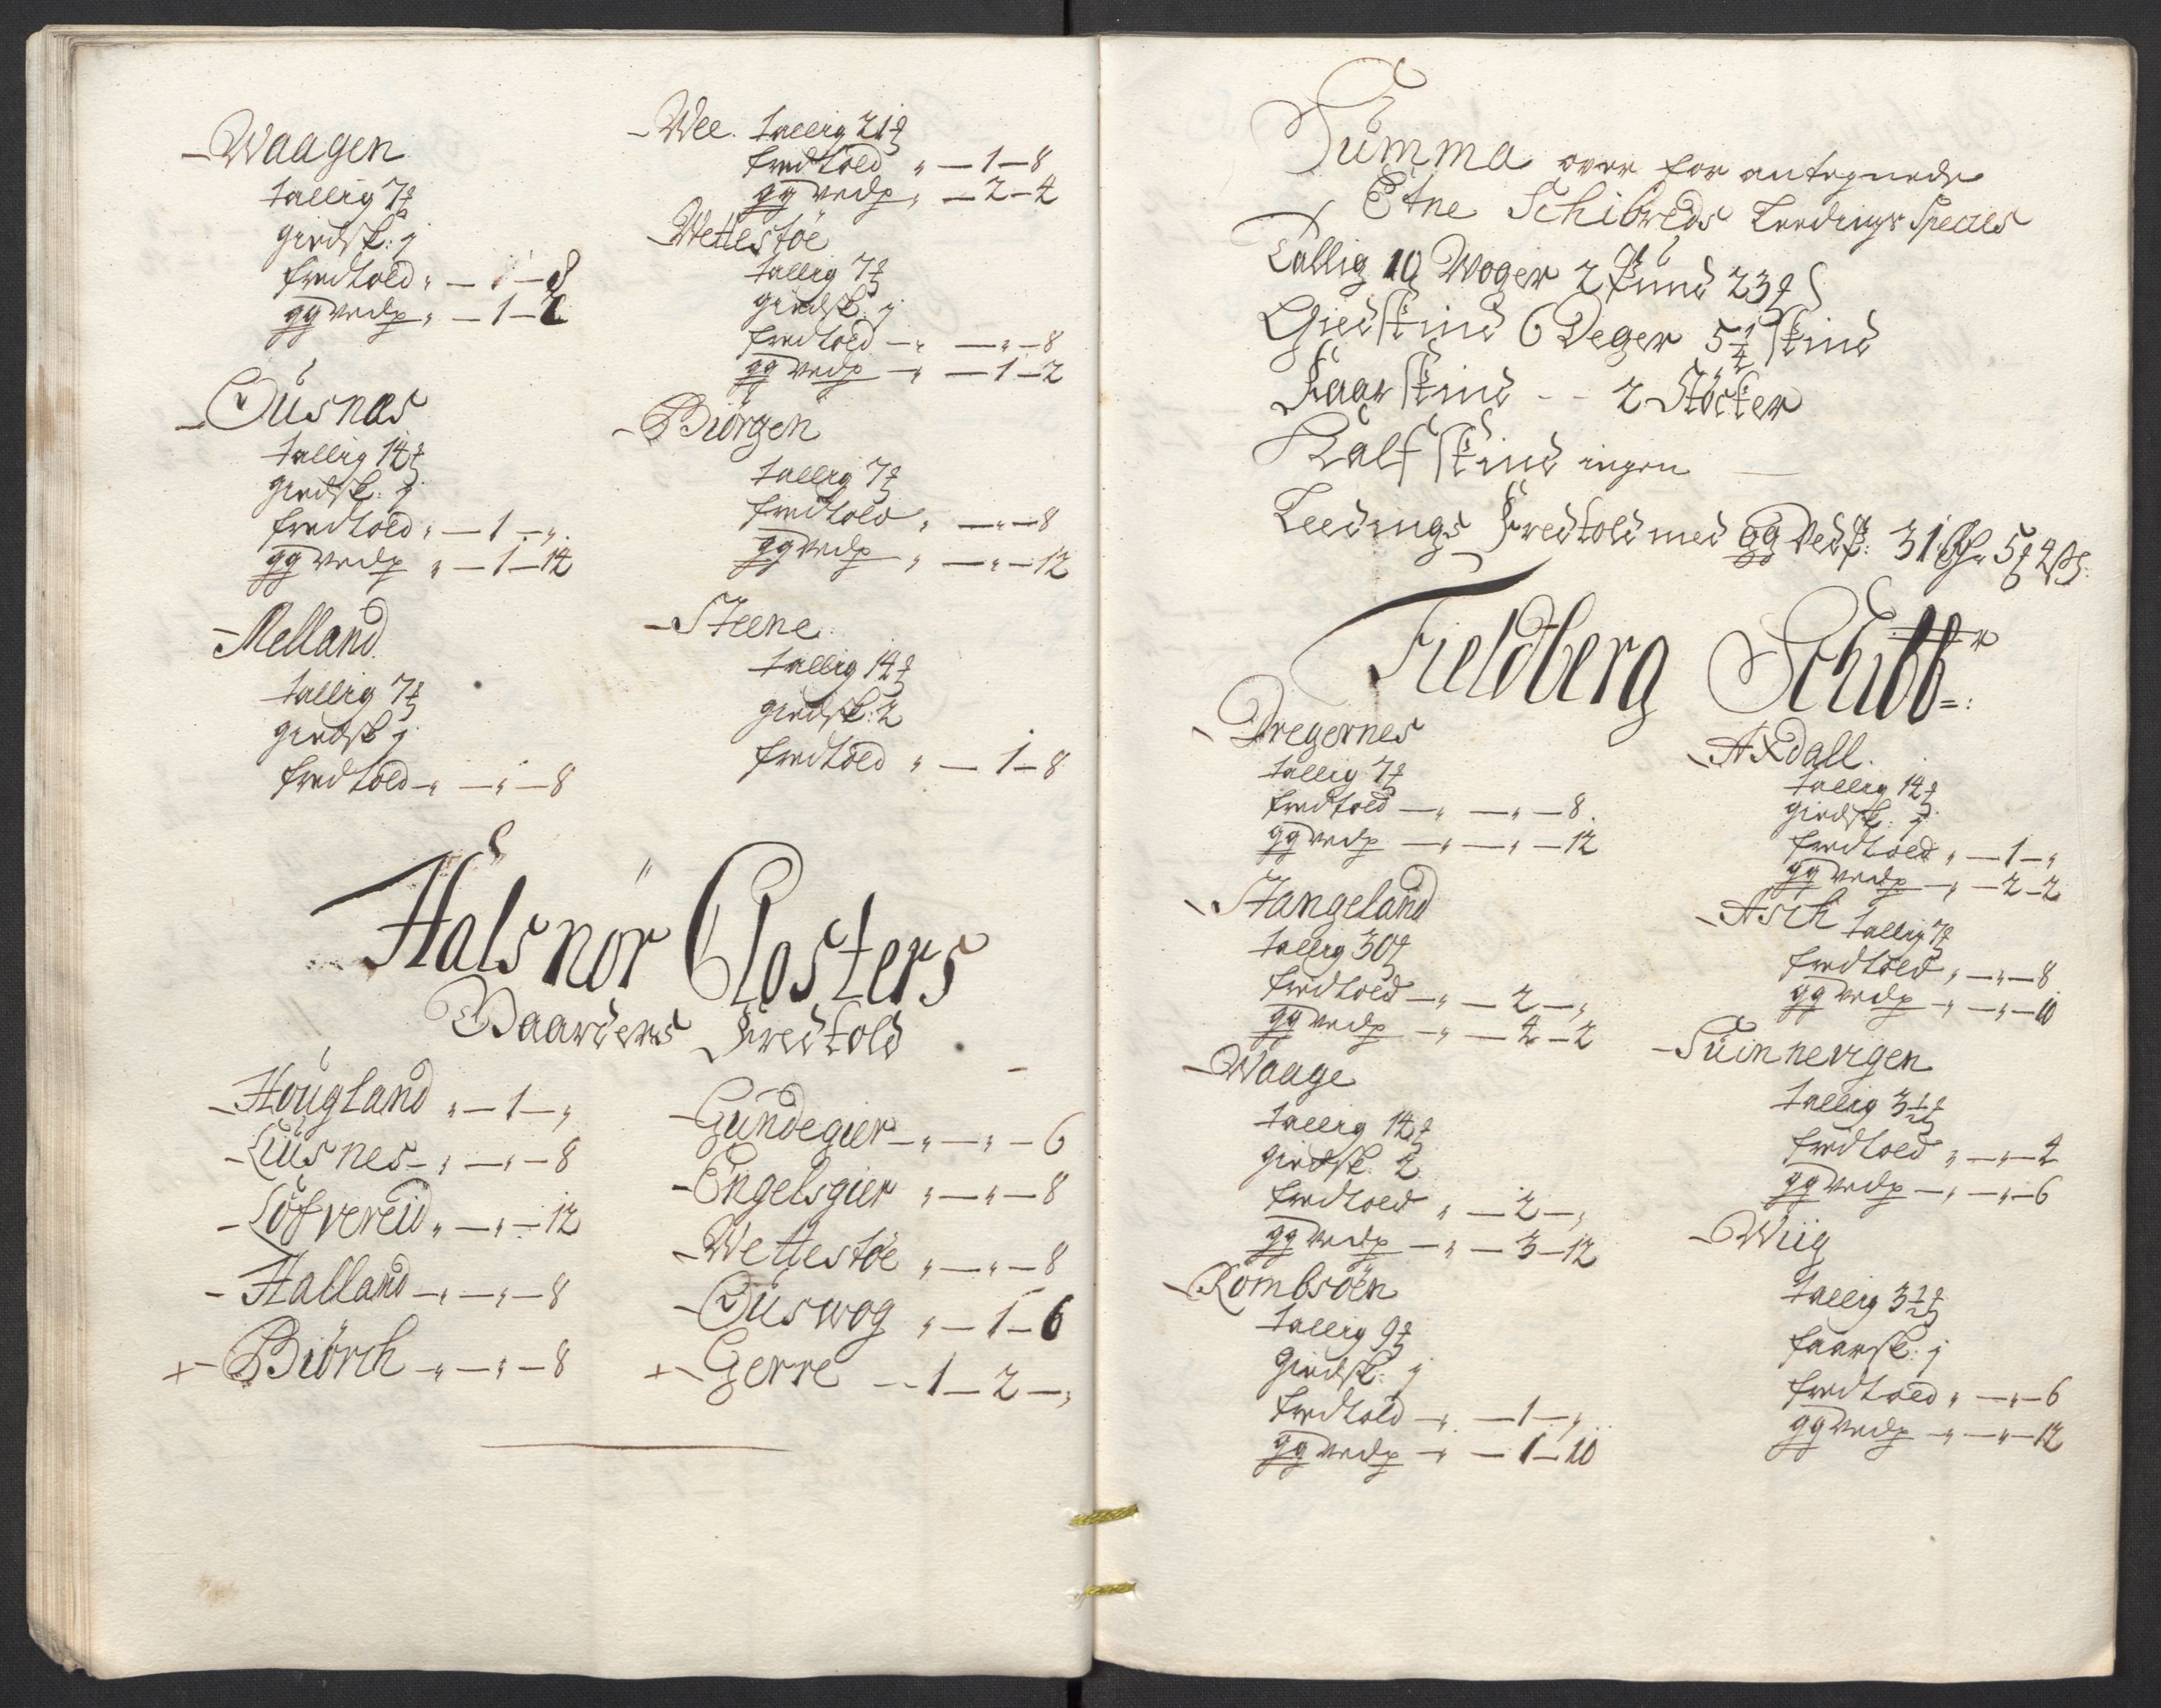 Waagen
tallig 7 ℔
giedsk: j
fredtold „ — 1 — 8
gg vedp „ — 1 — 2
Ousnas
tallig 14 ℔
giedsk: j
fredtold „ — 1 — „
gg vedp „ — 1 — 14
Melland
tallig 7 ℔
giedsk j
fredtold — „ — „ — 8
Wee. tallig 21 ℔
fredtold „ — 1 — 8
gg vedp „ — 2 — 4
Wettestöe
tallig 7 ℔
giedsk: j
fredtold — „ — „ — 8
gg vedp — „ — 1 — 2
Biörgen
tallig 7 ℔
fredtold „ — „ — 8
gg vedp „ — „ — 12
Steene
tallig 14 ℔
giedsk: 2
fredtold „ — 1 — 8
Halsnör Closters
Waarders Fredtold
Hougland „ — 1 — „
Liusnes — „ — „ — 8
Löfvereid „ — „ — 12
Halland — „ — „ — 8
+ Biörch — „ — „ — 8
Gundegier — „ — „ — 6
Engelsgier „ — „ — 8
Wettestöe „ — „ — 8
Ouswog „ — 1 — 6
+ Gerre — 1 — 2 — „
Summa over for antegnede
Etne Schibreds Leedings Species
Tallig 10 Woger 2 Pund 23 ℔
Giedskind 6 Deger 5 1/4 skind
Faarskind - - 2 Stöcker
Kalfskind ingen
Leedings Fredtold med gg Vedp: 31
Fieldberg Schibbr:
Dregernes
tallig 7 ℔
fredtold — „ — „ — 8.
gg vedp — „ — „ — 12
Stangeland
tallig 30 ℔
fredtold — „ — 2 — „
gg vedp — „ — 4 — 2
Waage
tallig 14 ℔
giedsk. 2
fredtold „ — 2 — „
gg vedp — „ — 3 — 12
Rombsöen
tallig 9 ℔
giedsk: j
fredtold — „ — 1 — „
gg vedp — „ — 1 — 10
Axdall.
tallig 14 ℔
giedsk: j
fredtold „ — 1 — „
gg vedp — „ — 2 — 2
Asch tallig 7 ℔
fredtold „ — „ — 8
gg vedp — „ — „ — 10
Suinnevigen
tallig 3 1/2 ℔
fredtold „ — „ — 4
gg vedp — „ — „ — 6
Wiig
tallig 3 1/2 ℔
faarsk: j
fredtold „ — „ — 6
gg vedp — „ — „ — 12